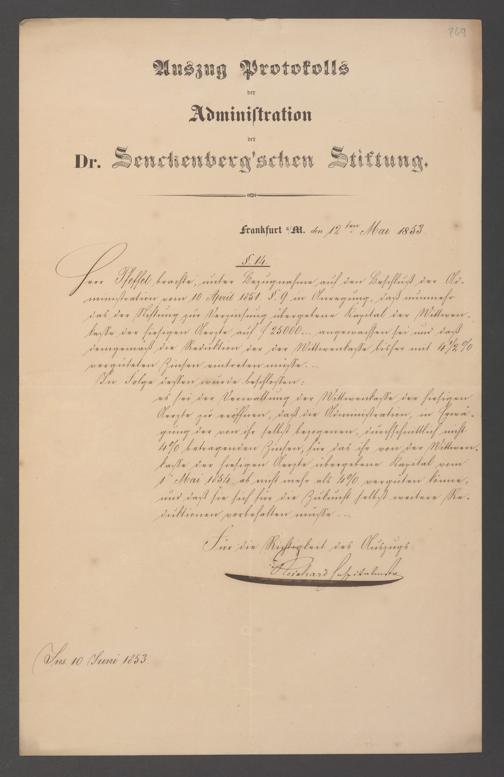 769
Auszug Protokolls
der
Administration
der
Dr. Senckenberg'schen Stiftung.
Frankfurt a/M. den 12ten Mai 1853
§ 14.
Herr Pfeffel brachte, unter Bezugnahme auf den Beschluß der Ad-
ministration vom 10 April 1851 § 9 in Anregung, daß nunmehr
das der Stiftung zur Verzinsung übergebene Kapital der Wittwen-
kasse der hiesigen Aerzte auf f 25000 .. angewachsen sei und daß
demgemäß die Reduktion der der Wittwenkasse bisher mit 4 1/2 %
vergüteten Zinsen eintreten müsse ..
In Folge dessen wurde beschlossen:
es sei der Verwaltung der Wittwenkasse der hiesigen
Aerzte zu eröffnen, daß die Administration, in Erwä-
gung der von ihr selbst bezogenen, durchschnittlich nicht
4 % betragenden Zinsen, für das ihr von der Wittwen-
kasse der hiesigen Aerzte übergebene Kapital vom
1 Mai 1854 ab nicht mehr als 4 % vergüten könne,
und daß sie sich für die Zukunft selbst weitere Re-
duktionen vorbehalten müsse ..
Für die Richtigkeit des Auszugs
Reichard
10 Juni 1853